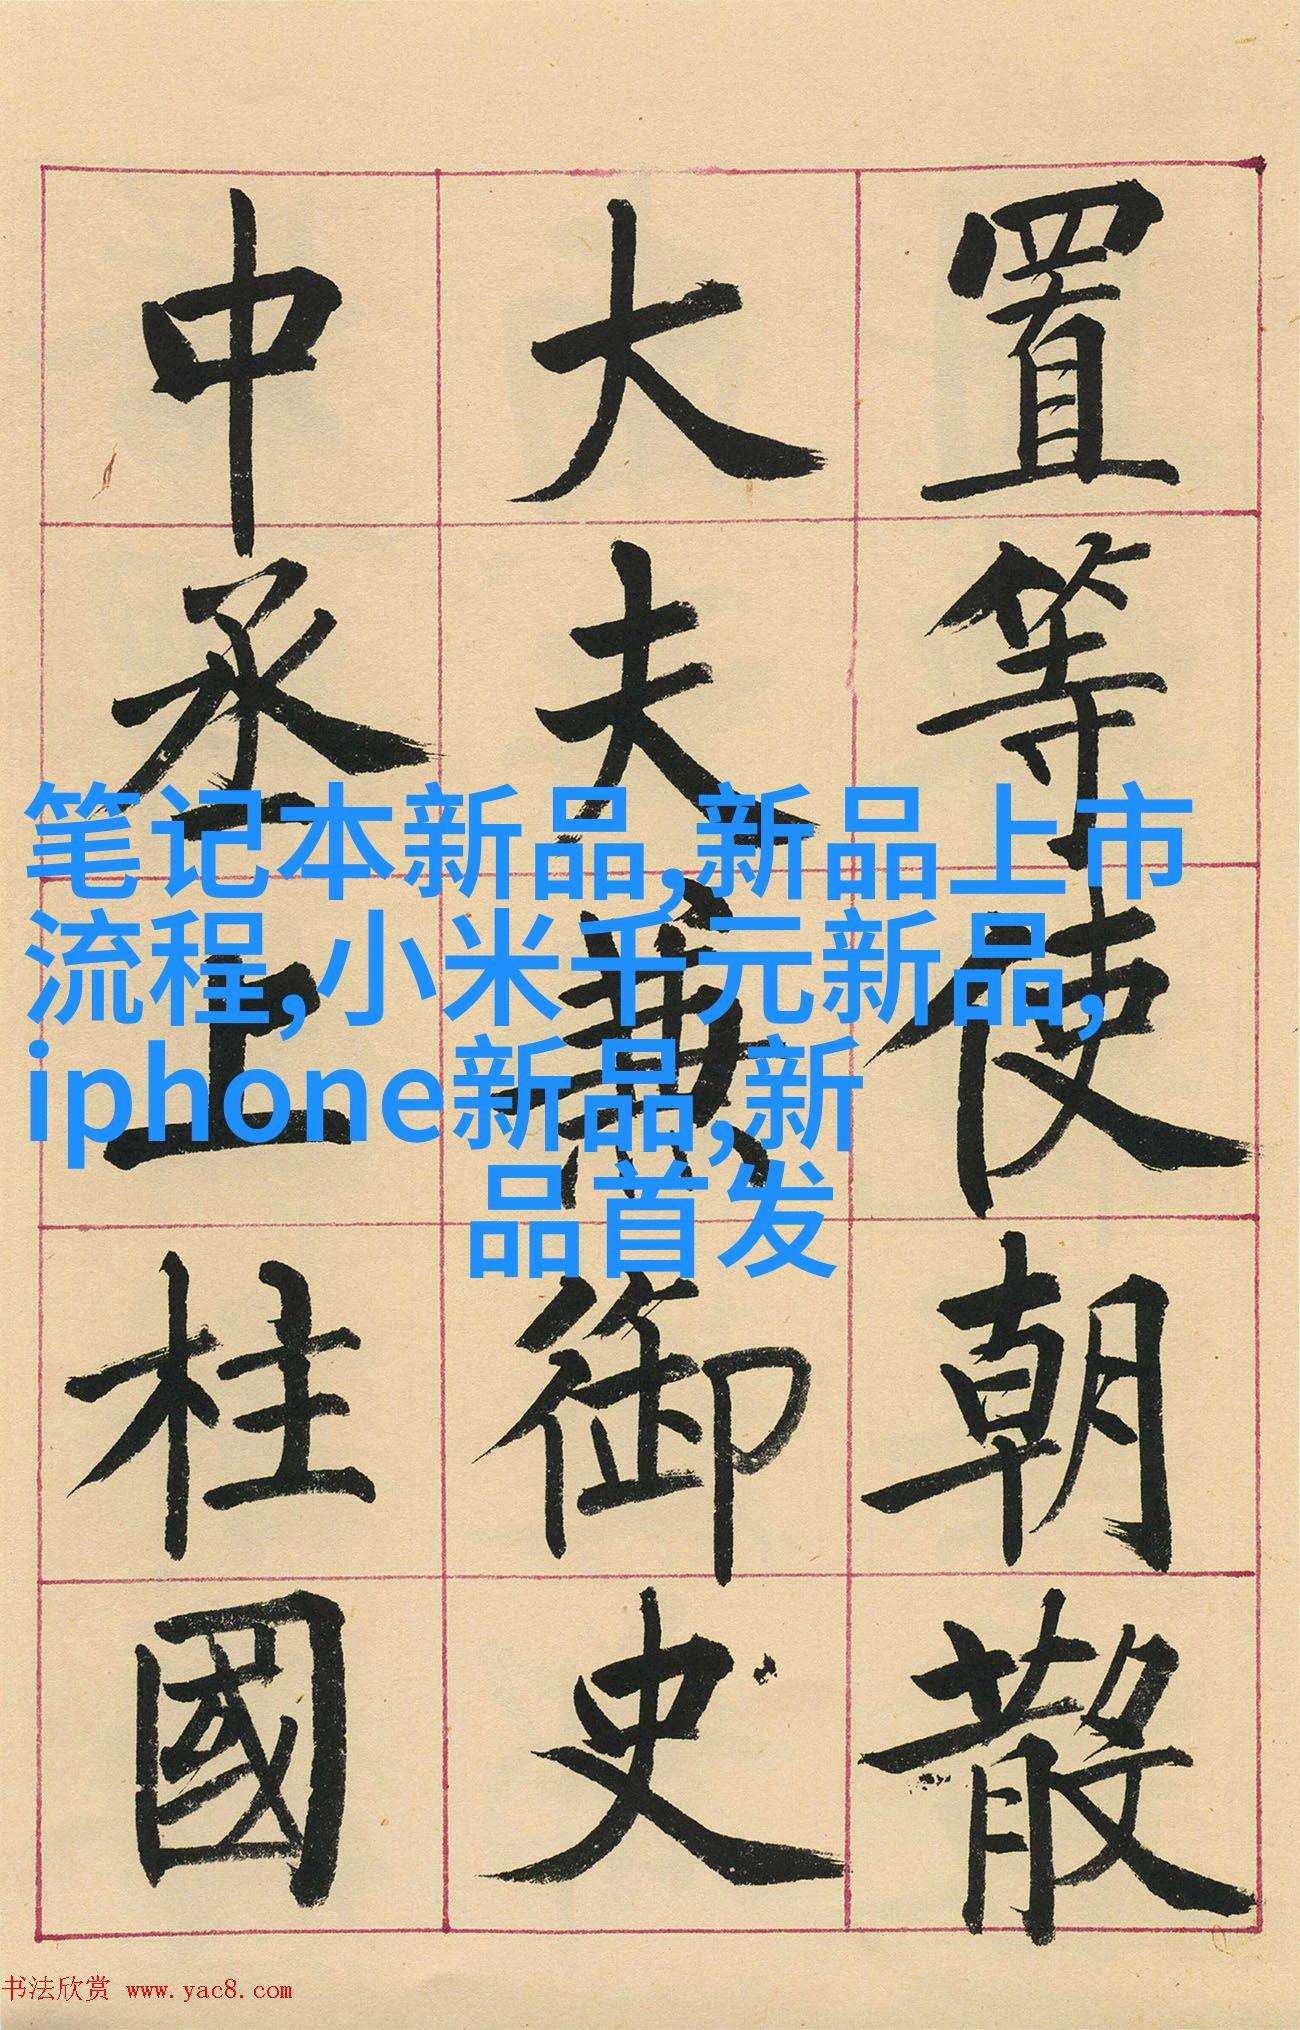 置等使朝散
大夫兼御史
中丞上柱國
笔记本新品,新品上市
流程,小米千元新品,
iphone新品,新
品首发
书法欣赏 www.yac8.com